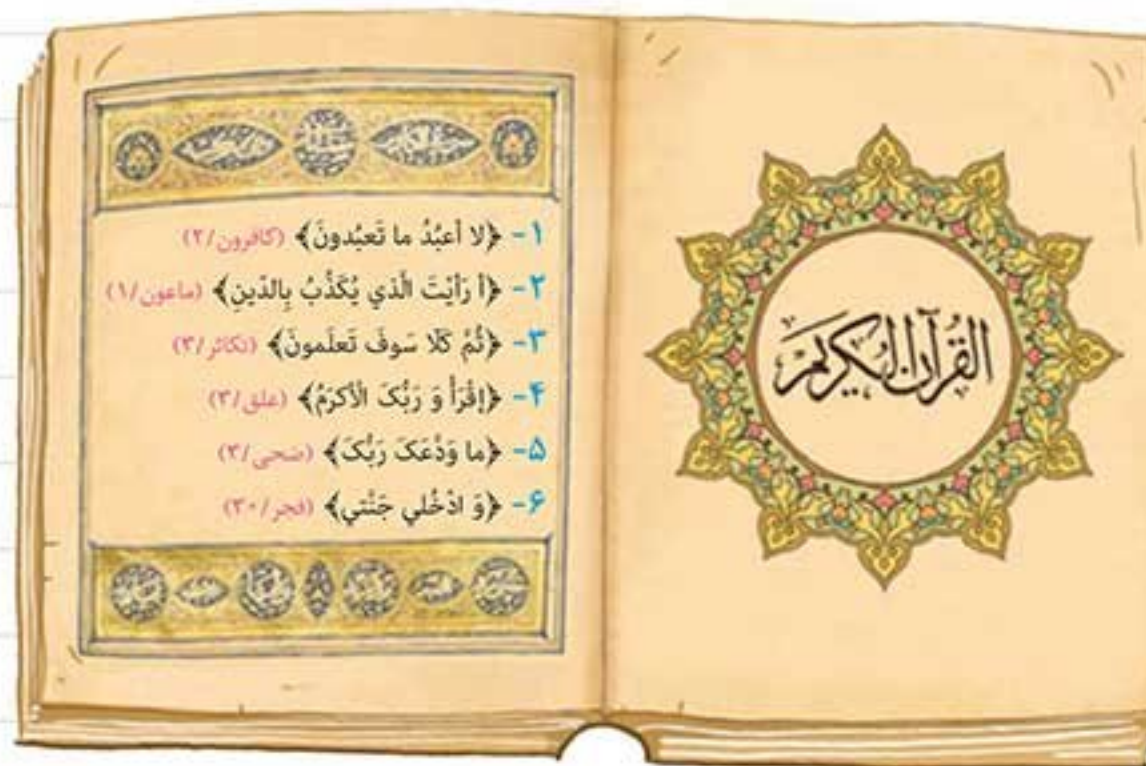 القُرآن الكَریم
۱- ﴿لا أعبُدُ ما تَعبُدونَ﴾ (کافرون/۲)
۲- ﴿أ رَأَیْتَ الَّذي یُکَذِّبُ بِالدّینِ﴾ (ماعون/۱)
۳- ﴿ثُمَّ کَلّا سَوفَ تَعلَمونَ﴾ (تکاثر/۳)
۴- ﴿إقْرَأْ وَ رَبُّکَ الْأکرَمُ﴾ (علق/۳)
۵- ﴿ما وَدَّعَکَ رَبُّکَ﴾ (ضحی/۳)
۶- ﴿وَ ادْخُلي جَنَّتي﴾ (فجر/۳۰)